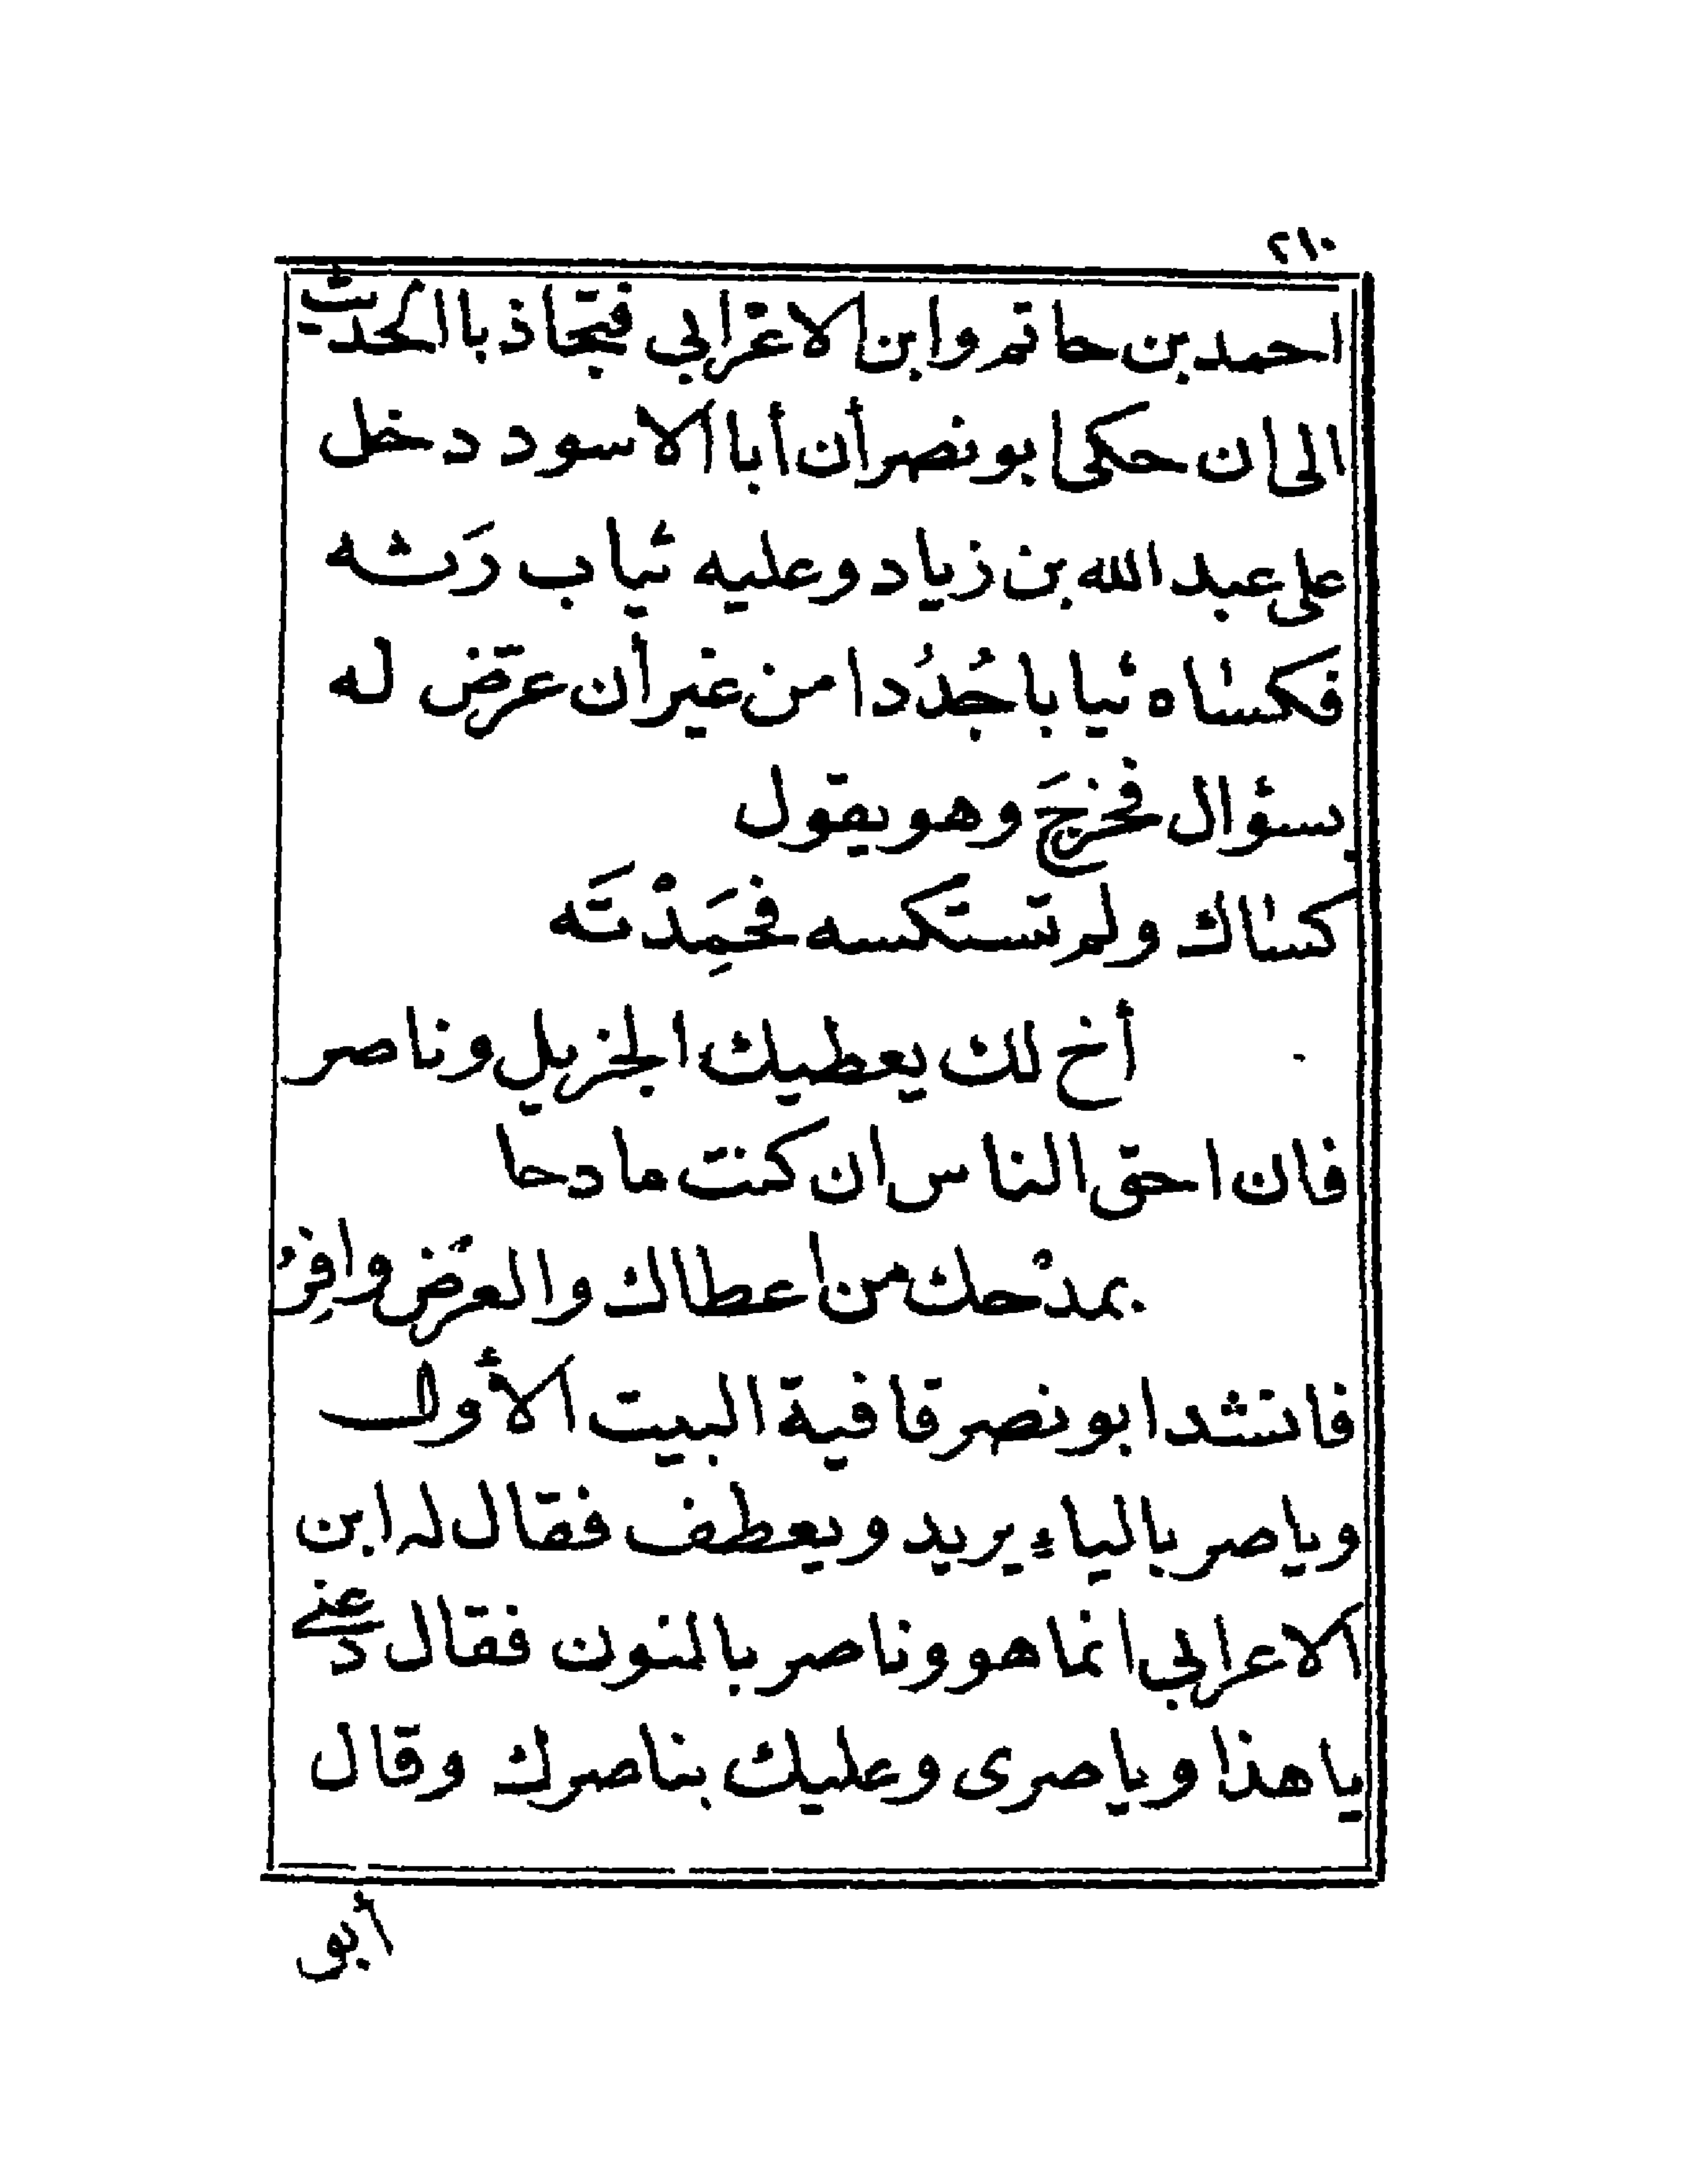 ٢١٠
احمد بن حاتم وابن الاعرابي فتجاذبا الحديث
الى ان حكى ابو نصر أن أبا الاسود دخل
على عبد الله بن زياد وعليه ثياب رَثه
فكساه ثيابا جُدُدا من غير أن عرّض له
بسؤال فخرجَ وهو يقول
كساك ولم تستكسه فحمِدْتَه
أخ لك يعطيك الجزيل وناصر
فان احق الناس ان كنت مادحا
بمدْحك من اعطاك والعرْض وافِرُ
فانشد ابو نصر قافية البيت الأول
وياصر بالياء يريد ويعطف فقال له ابن
الاعرابي انما هو وناصر بالنون فقال دعني
يا هذا وياصرى وعليك بناصرك وقال
أبو